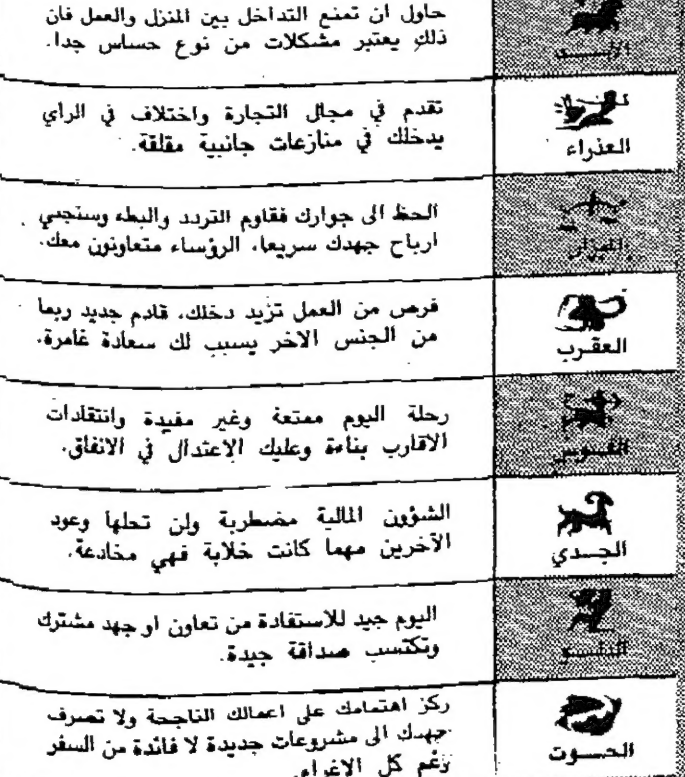 حاول ان تمنع التداخل بين المنزل والعمل فان
ذلك يعتبر مشكلات من نوع حساس جدا.
الأسد
تقدم في مجال التجارة واختلاف في الراي
يدخلك في منازعات جانبية مقلقة.
العذراء
الحظ الى جوارك فقاوم التردد والبطء وستجني
ارباح جهدك سريعا، الرؤساء متعاونون معك.
الميزان
فرص من العمل تزيد دخلك، قادم جديد ربما
من الجنس الاخر يسبب لك سعادة غامرة.
العقرب
رحلة اليوم ممتعة وغير مفيدة وانتقادات
الاقارب بناءة وعليك الاعتدال في الانفاق.
القوس
الشؤون المالية مضطربة ولن تحلها وعود
الآخرين مهما كانت خلابة فهي مخادعة.
الجدي
اليوم جيد للاستفادة من تعاون او جهد مشترك
وتكتسب صداقة جيدة.
الدلو
ركز اهتمامك على اعمالك الناجحة ولا تصرف
جهدك الى مشروعات جديدة لا فائدة من السفر
رغم كل الاغراء.
الحوت